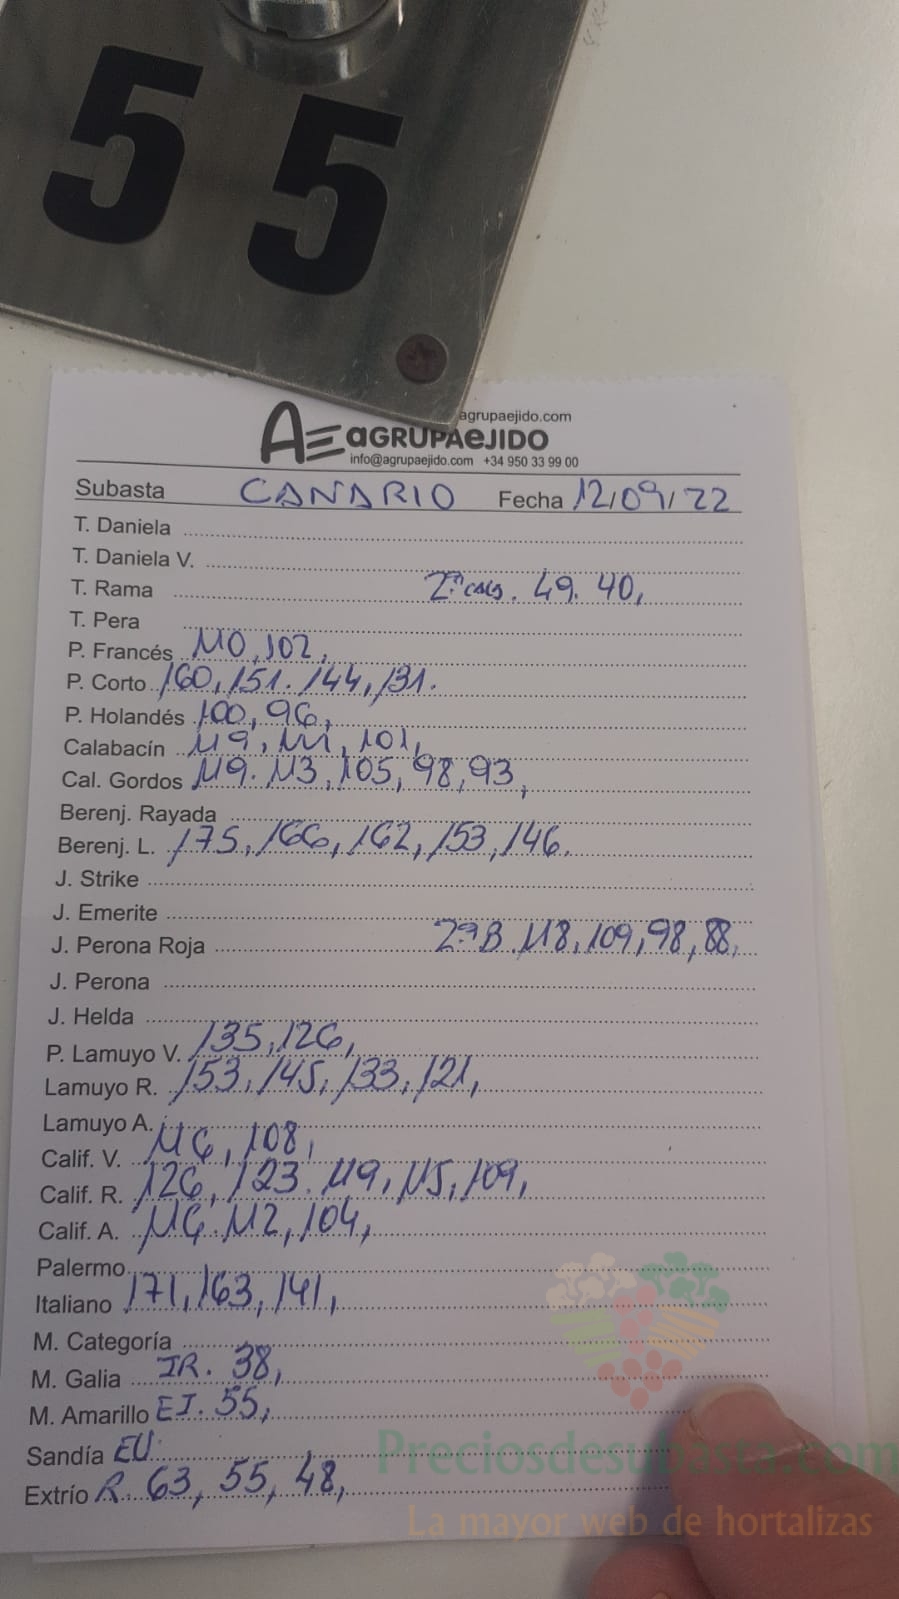 55
agrupaejido.com
AE aGRUPAeJIDO
info@agrupaejido.com +34 950 33 99 00
Subasta CANARIO Fecha 12/09/22
T. Daniela
T. Daniela V.
T. Rama 49. 40,
T. Pera
P. Francés 110, 102,
P. Corto 160, 151. 144, 131.
P. Holandés 100, 96,
Calabacín 119, 111, 101,
Cal. Gordos 119. 113, 105, 98, 93,
Berenj. Rayada
Berenj. L. 175, 166, 162, 153, 146.
J. Strike
J. Emerite
J. Perona Roja 2ªB. 118, 109, 98, 88,
J. Perona
J. Helda
P. Lamuyo V. 135, 126,
Lamuyo R. 153, 145, 133, 121,
Lamuyo A.
Calif. V. 116, 108,
Calif. R. 126, 123. 119, 115, 109,
Calif. A. 116. 112, 104,
Palermo
Italiano 171, 163, 141,
M. Categoría
M. Galia IR. 38,
M. Amarillo EI. 55,
Sandía EU.
Extrío R. 63, 55, 48,
Preciosdesubasta.com
La mayor web de hortalizas